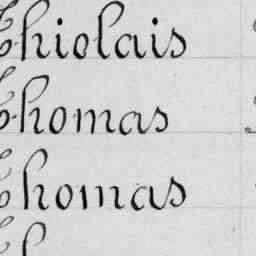 Thiolais
Thomas
Thomas